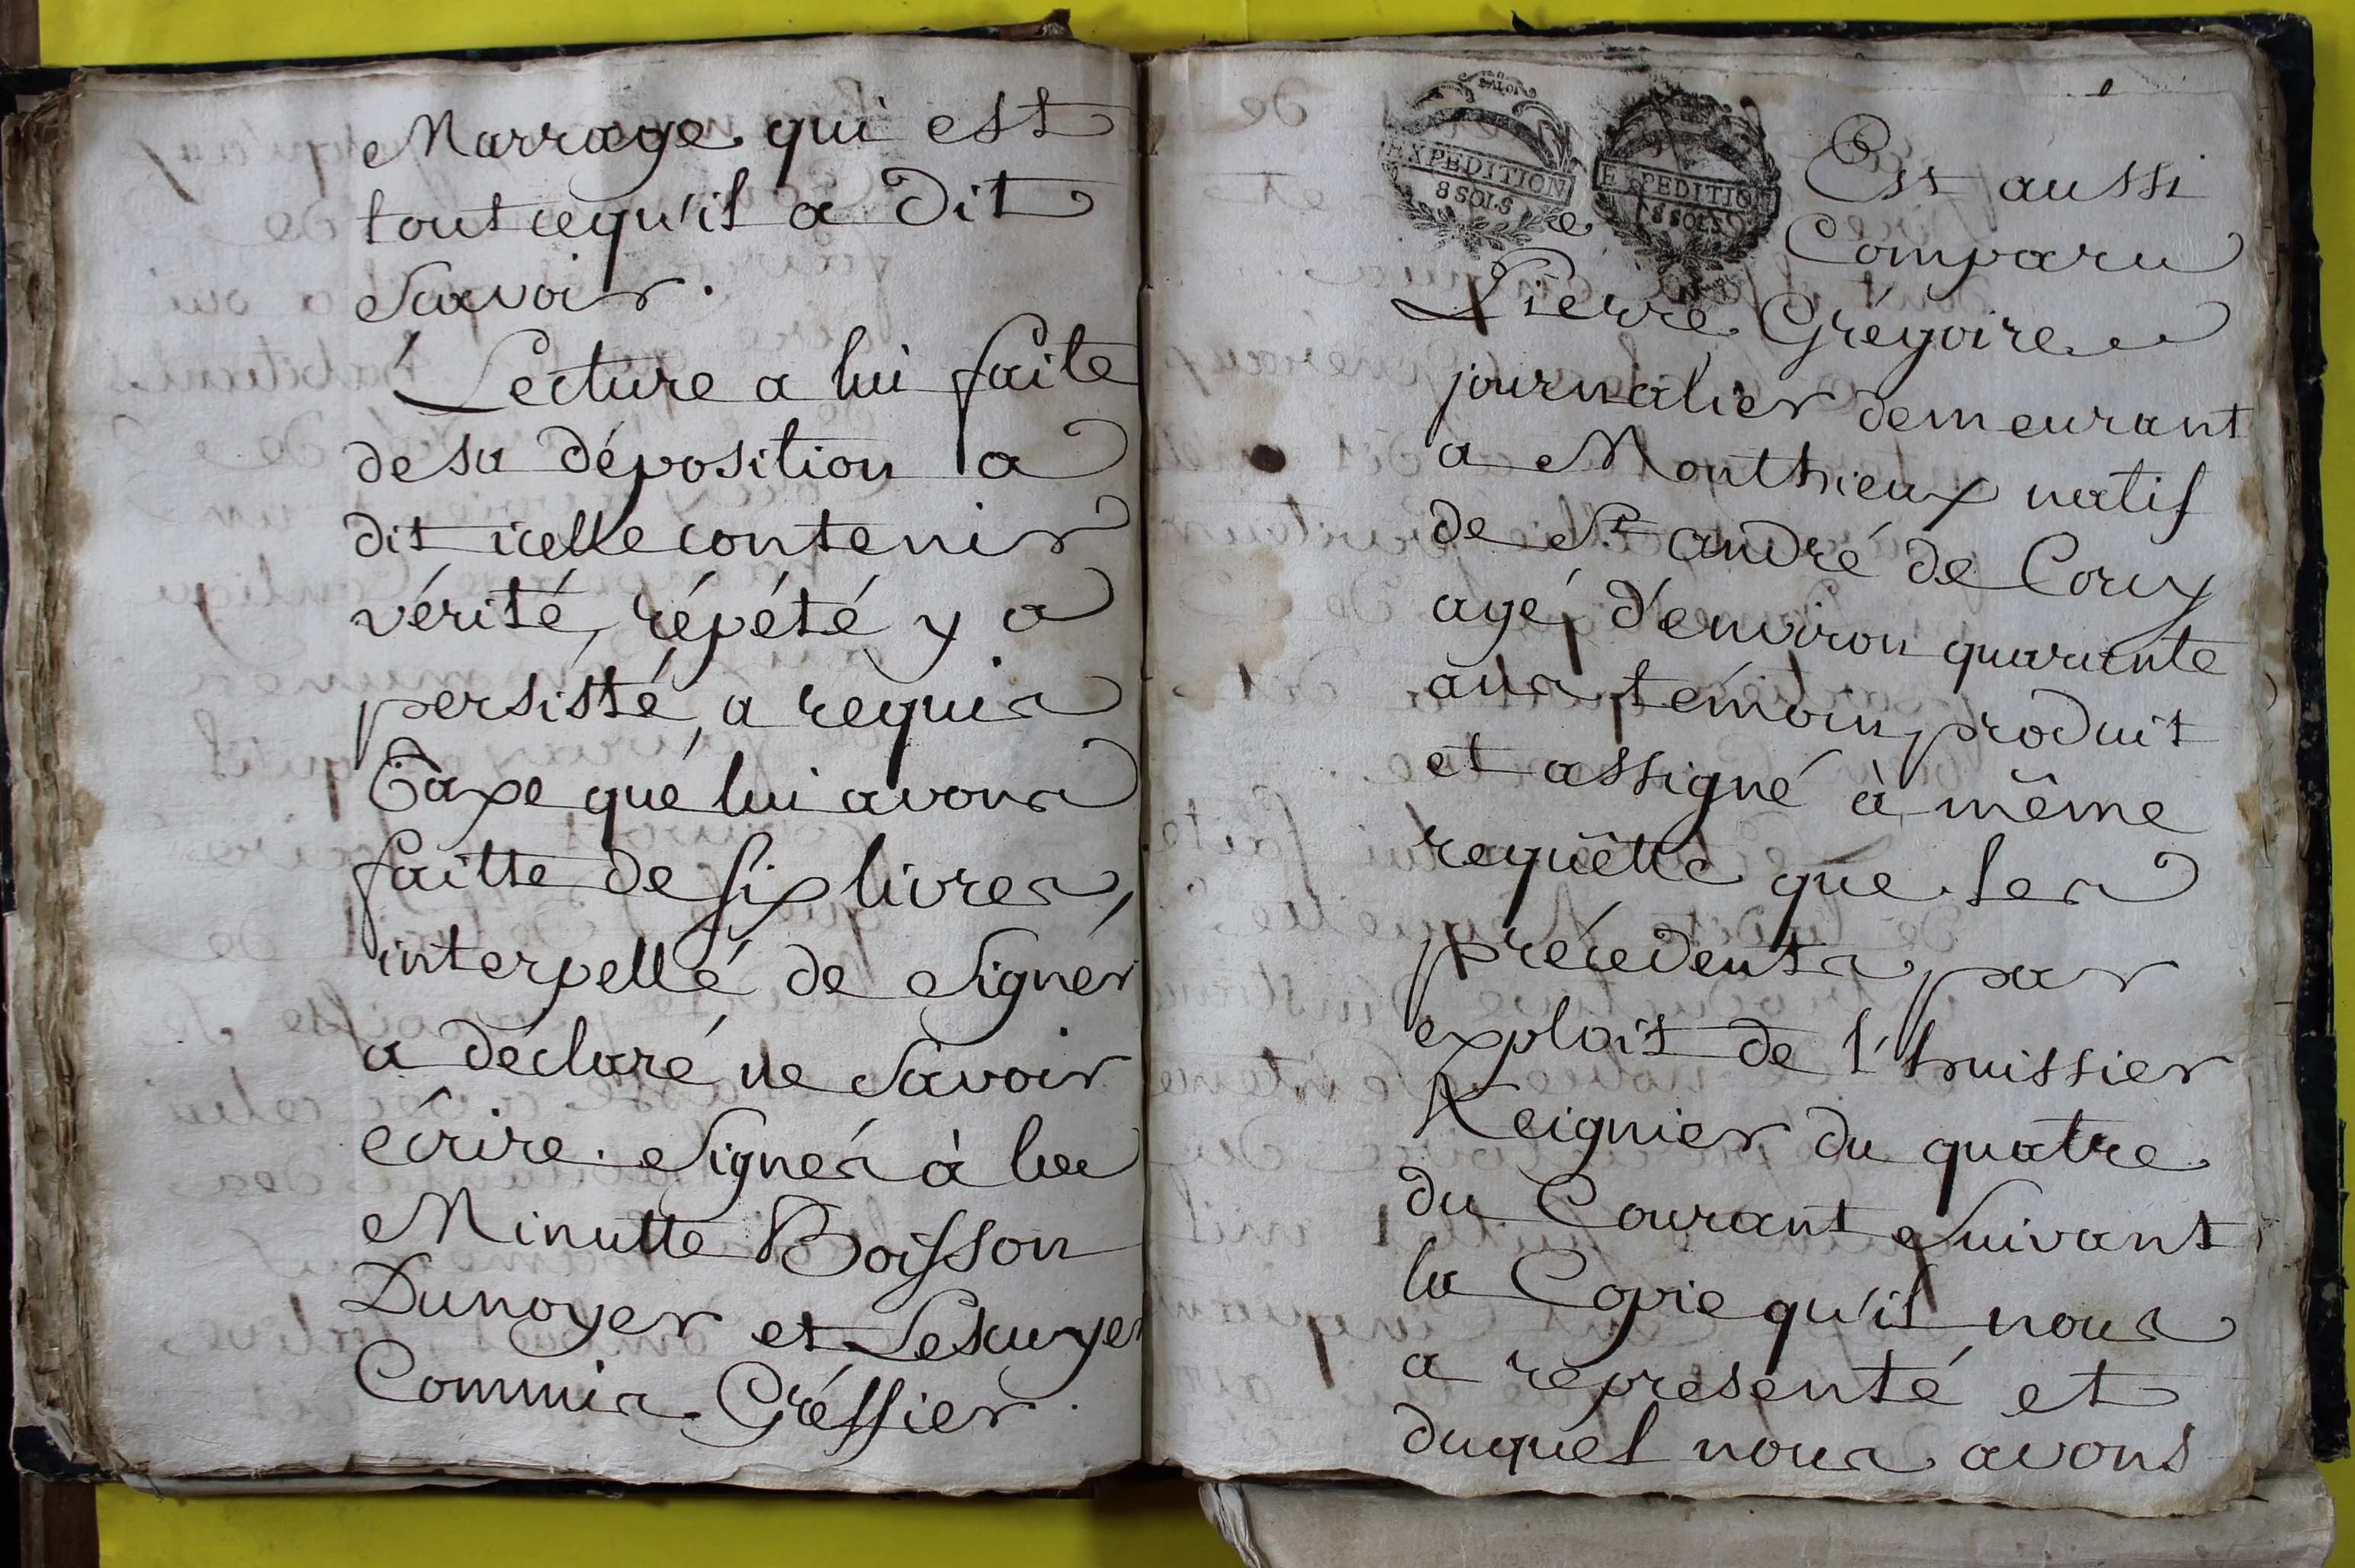 Marrage qui est
tout cequ'il a dit
Savoir.
Lecture a lui faite
desa déposition a
dit icelle contenir
vérité, répété y a
persisté, a requis
Taxe que lui avons
faitte de six livres,
interpellé de Signer
a déclaré ne Savoir
écrire. Signés à la
Minutte Boisson
Dunoyer et Lescuyer
Commis Gréffier.
EXPEDITION
8 SOLS
EXPEDITION
8 SOLS
Est aussi
Comparu
Pierre Grégoire
journalier demeurant
a Monthieux natif
de St andré de Corcy
agé d'environ quarante
ans, temoin produit
et assigné à même
requêtte que les
précédents par
exploit de l'huissier
Reignier du quatre
du Courant Suivant
la Copie qu'il nous
a représenté et
duquel nous avons